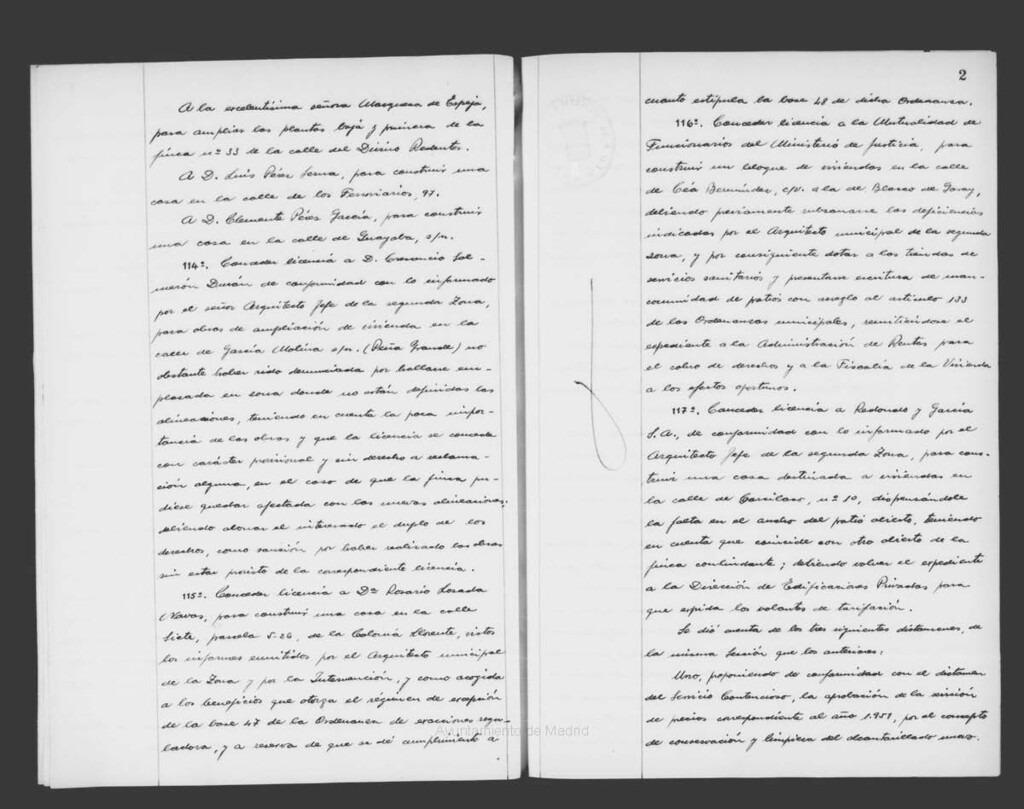 A la excelentísima señora Marquesa de Espeja,
para ampliar las plantas baja y primera de la
finca nº 33 de la calle del Divino Redentor.
A D. Luis Pérez Serna, para construir una
casa en la calle de los Ferroviarios, 97.
A D. Clemente Pérez García, para construir
una casa en la calle de Guayaba, s/n.
114º. Conceder licencia a D. Cresencio Sal-
merón Durán de conformidad con lo informado
por el señor Arquitecto Jefe de la segunda Zona,
para obras de ampliación de vivienda en la
calle de García Molina s/n. (Peña Grande) no
obstante haber sido denunciada por hallarse em-
plazada en zona donde no están definidas las
alineaciones, teniendo en cuenta la poca impor-
tancia de las obras y que la licencia se concede
con carácter provisional y sin derecho a reclama-
ción alguna, en el caso de que la finca pu-
diese quedar afectada con las nuevas alineaciones;
debiendo abonar el interesado el duplo de los
derechos, como sanción por haber realizado las obras
sin estar provisto de la correspondiente licencia.
115º. Conceder licencia a Dª Rosario Losada
Navas, para construir una casa en la calle
Siete, parcela S-26, de la Colonia Llorente, vistos
los informes emitidos por el Arquitecto municipal
de la Zona y por la Intervención, y como acogida
a los beneficios que otorga el régimen de excepción
de la base 47 de la Ordenanza de exacciones regu-
ladora, y a reserva de que se dé cumplimiento a
2
cuanto estipula la base 48 de dicha Ordenanza.
116º. Conceder licencia a la Mutualidad de
Funcionarios del Ministerio de Justicia, para
construir un bloque de viviendas en la calle
de Ceá Bermúdez, c/v. a la de Blasco de Garay,
debiendo previamente subsanarse las deficiencias
indicadas por el Arquitecto municipal de la segunda
zona, y por consiguiente dotar a las tiendas de
servicios sanitarios y presentarse escritura de man-
comunidad de patios con arreglo al artículo 133
de las Ordenanzas municipales, remitiéndose el
expediente a la Administración de Rentas para
el cobro de derechos y a la Fiscalía de la Vivienda
a los efectos oportunos.
117º. Conceder licencia a Redondo y García
S.A., de conformidad con lo informado por el
Arquitecto Jefe de la segunda Zona, para cons-
truir una casa destinada a viviendas en
la calle de Garcilaso, nº 10, dispensándole
la falta en el ancho del patio abierto, teniendo
en cuenta que coincide con otro abierto de la
finca colindante; debiendo volver el expediente
a la Dirección de Edificaciones Privadas para
que expida los volantes de tarifación.
Se dió cuenta de los tres siguientes dictámenes, de
la misma Sesión que los anteriores:
Uno, proponiendo de conformidad con el dictamen
del Servicio Contencioso, la aprobación de la revisión
de precios correspondiente al año 1.951, por el concepto
de conservación y limpieza del alcantarillado
Ayuntamiento de Madrid